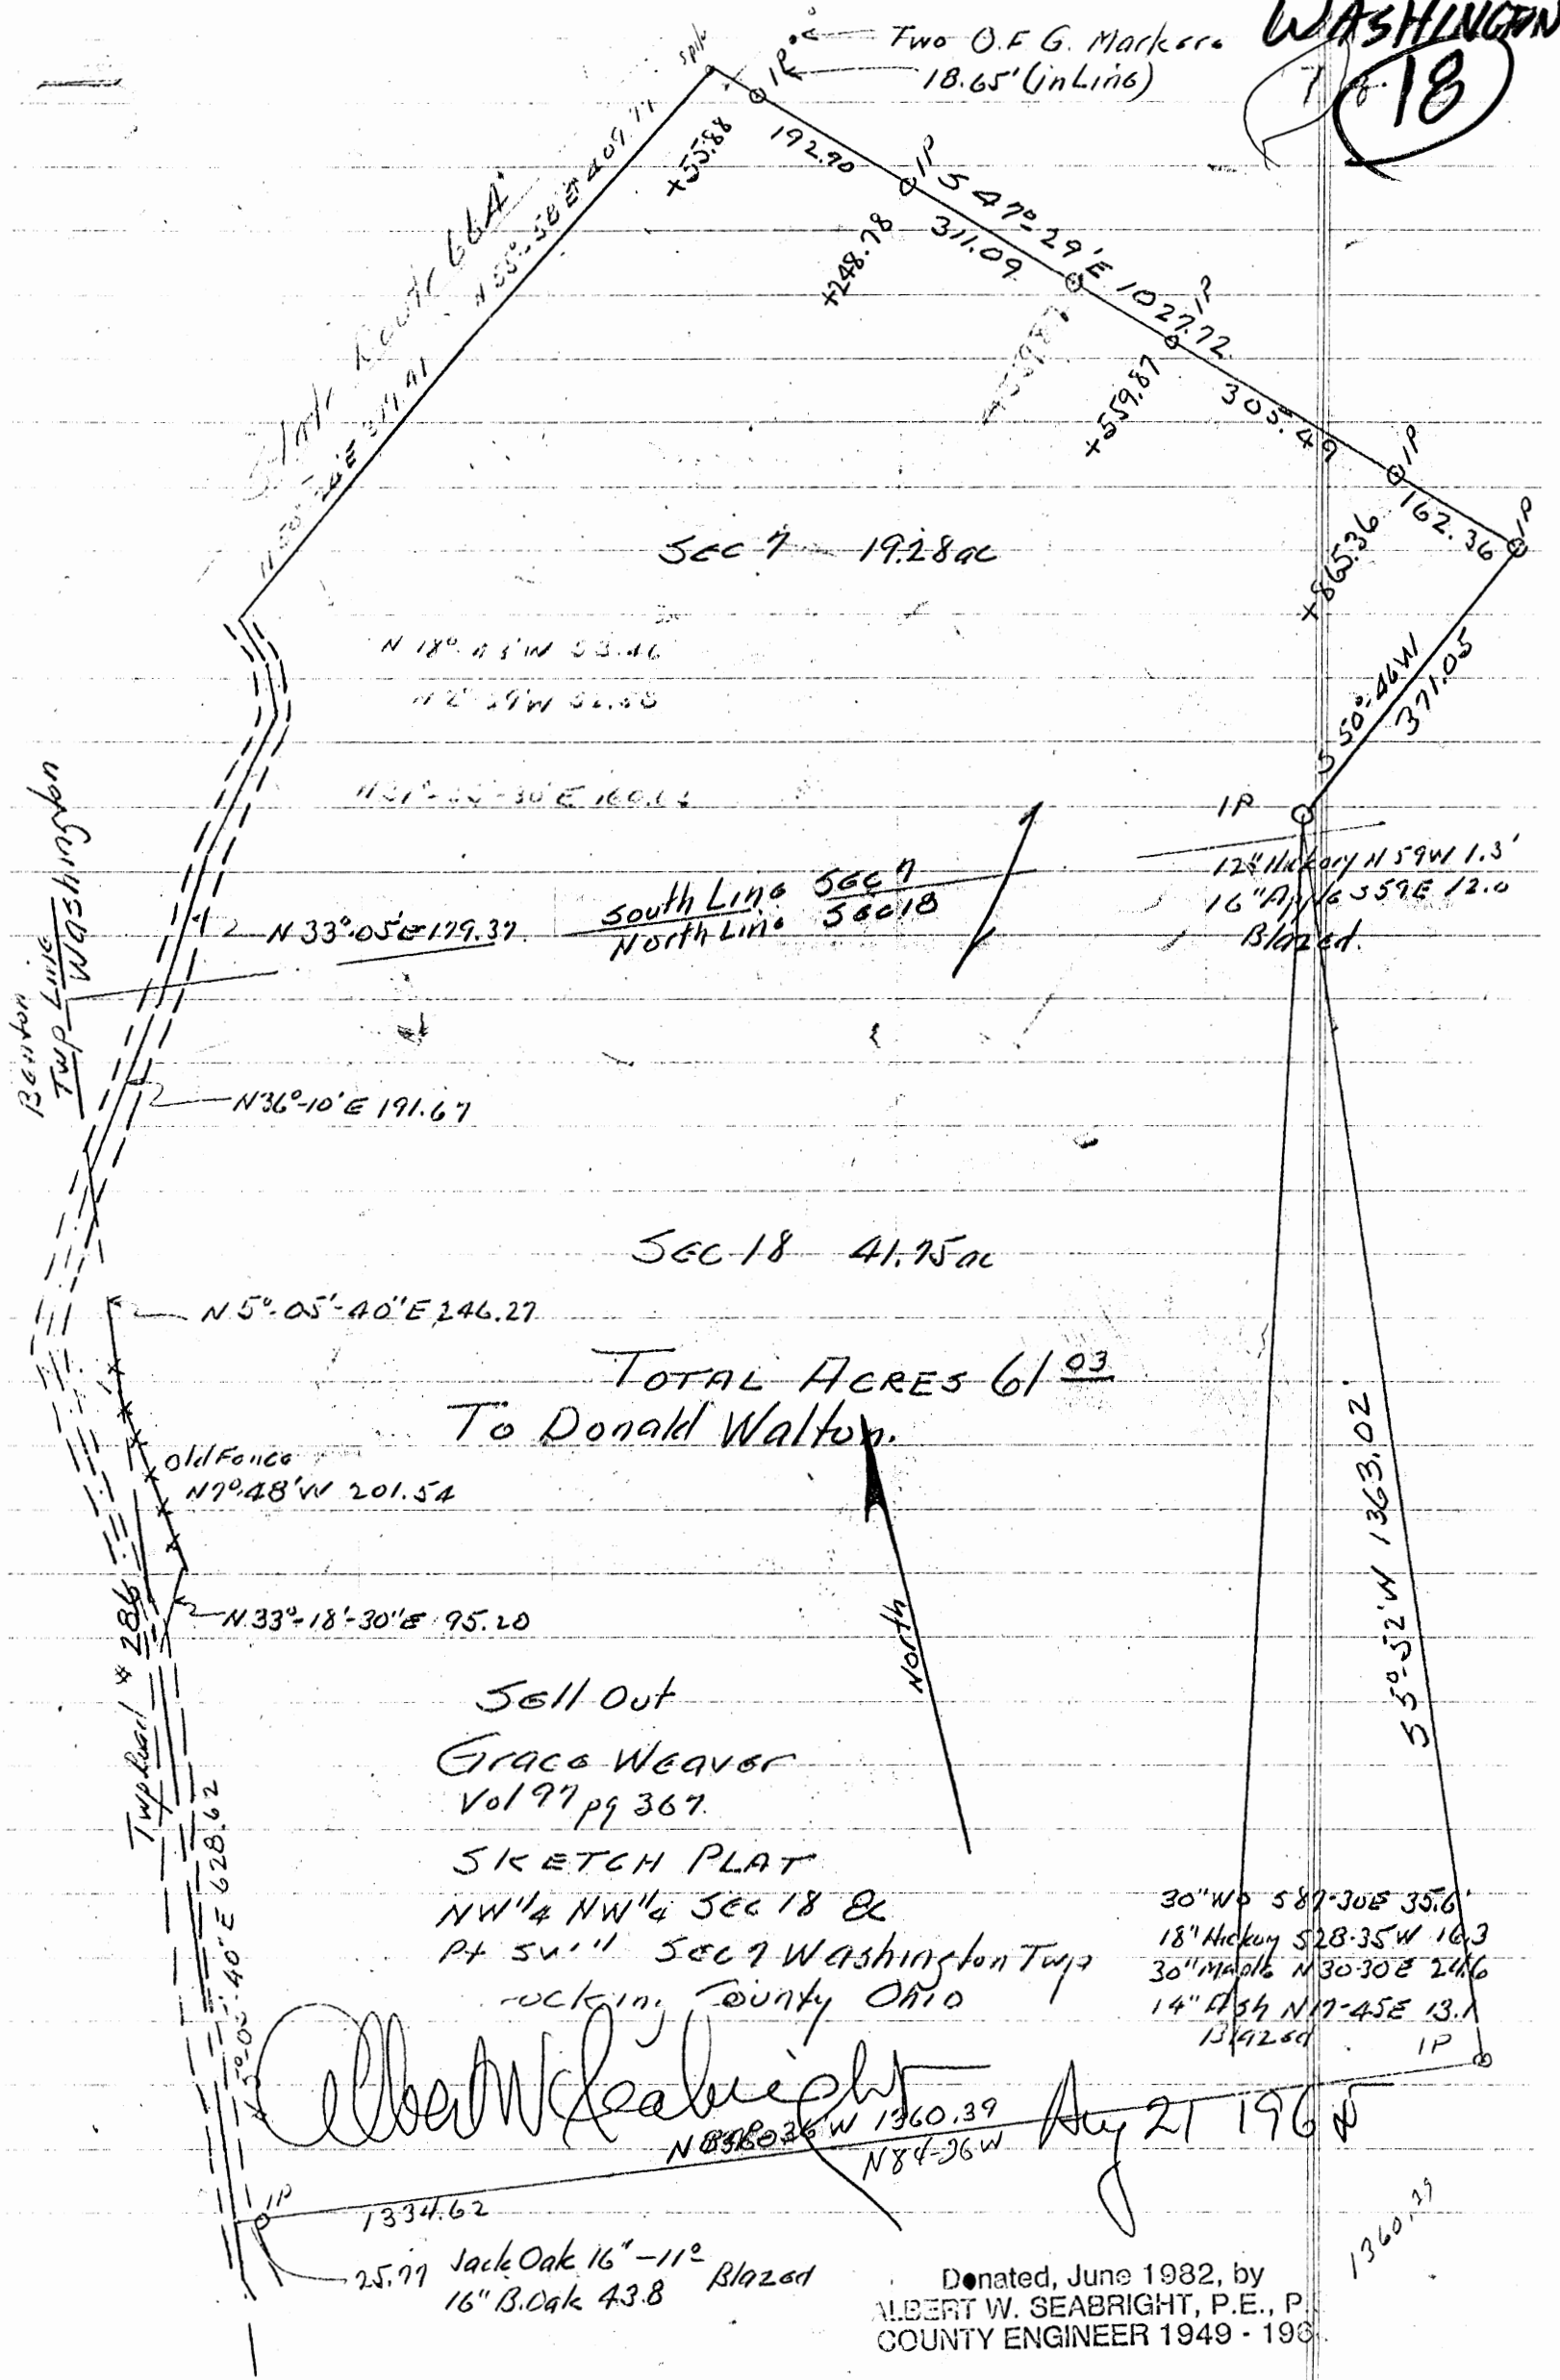 WASHINGTON
18
Two O.F G. Markers
18.65' (in Line)
spike
IP
+55.88
192.90
IP
S 47°-29'E 1027.72
+248.78
311.09
IP
+559.87
305.49
IP
+865.36
162.36
IP
State Route 664
Sec 7 19.28ac
S 50°-46W
371.05
IP
12" Hickory N 59W 1.3'
16" Apple S59E 12.0
Blazed.
South Line Sec 7
North Line Sec 18
N 33°-05'E 179.37
Benton
Twp Line
Washington
N36°-10'E 191.67
Sec 18 41.75ac
N 5°-05'-40"E 246.27
TOTAL ACRES 61 03
To Donald Walton.
Old Fence
N7°-48'W 201.54
N 33°-18'-30"E 95.20
Twp Road # 286
North
S 5°-52'W 1363.02'
Sell Out
Grace Weaver
Vol 97 pg 367.
SKETCH PLAT
NW 1/4 NW 1/4 Sec 18 &
Pt Sec 7 Washington Twp
County Ohio
30" WO S 87-30E 35.6'
18" Hickory S28-35W 16.3
30" Maple N30-30E 24.6
14" Ash N17-45E 13.1
Blazed
IP
40"E 628.62
Albert W Seabright
Aug 21 196
W 1360.39
N84-36W
IP
1334.62
25.77
Jack Oak 16" -11°
16" B.Oak 43.8
Blazed
1360.39
Donated, June 1982, by
ALBERT W. SEABRIGHT, P.E., P.
COUNTY ENGINEER 1949 - 196